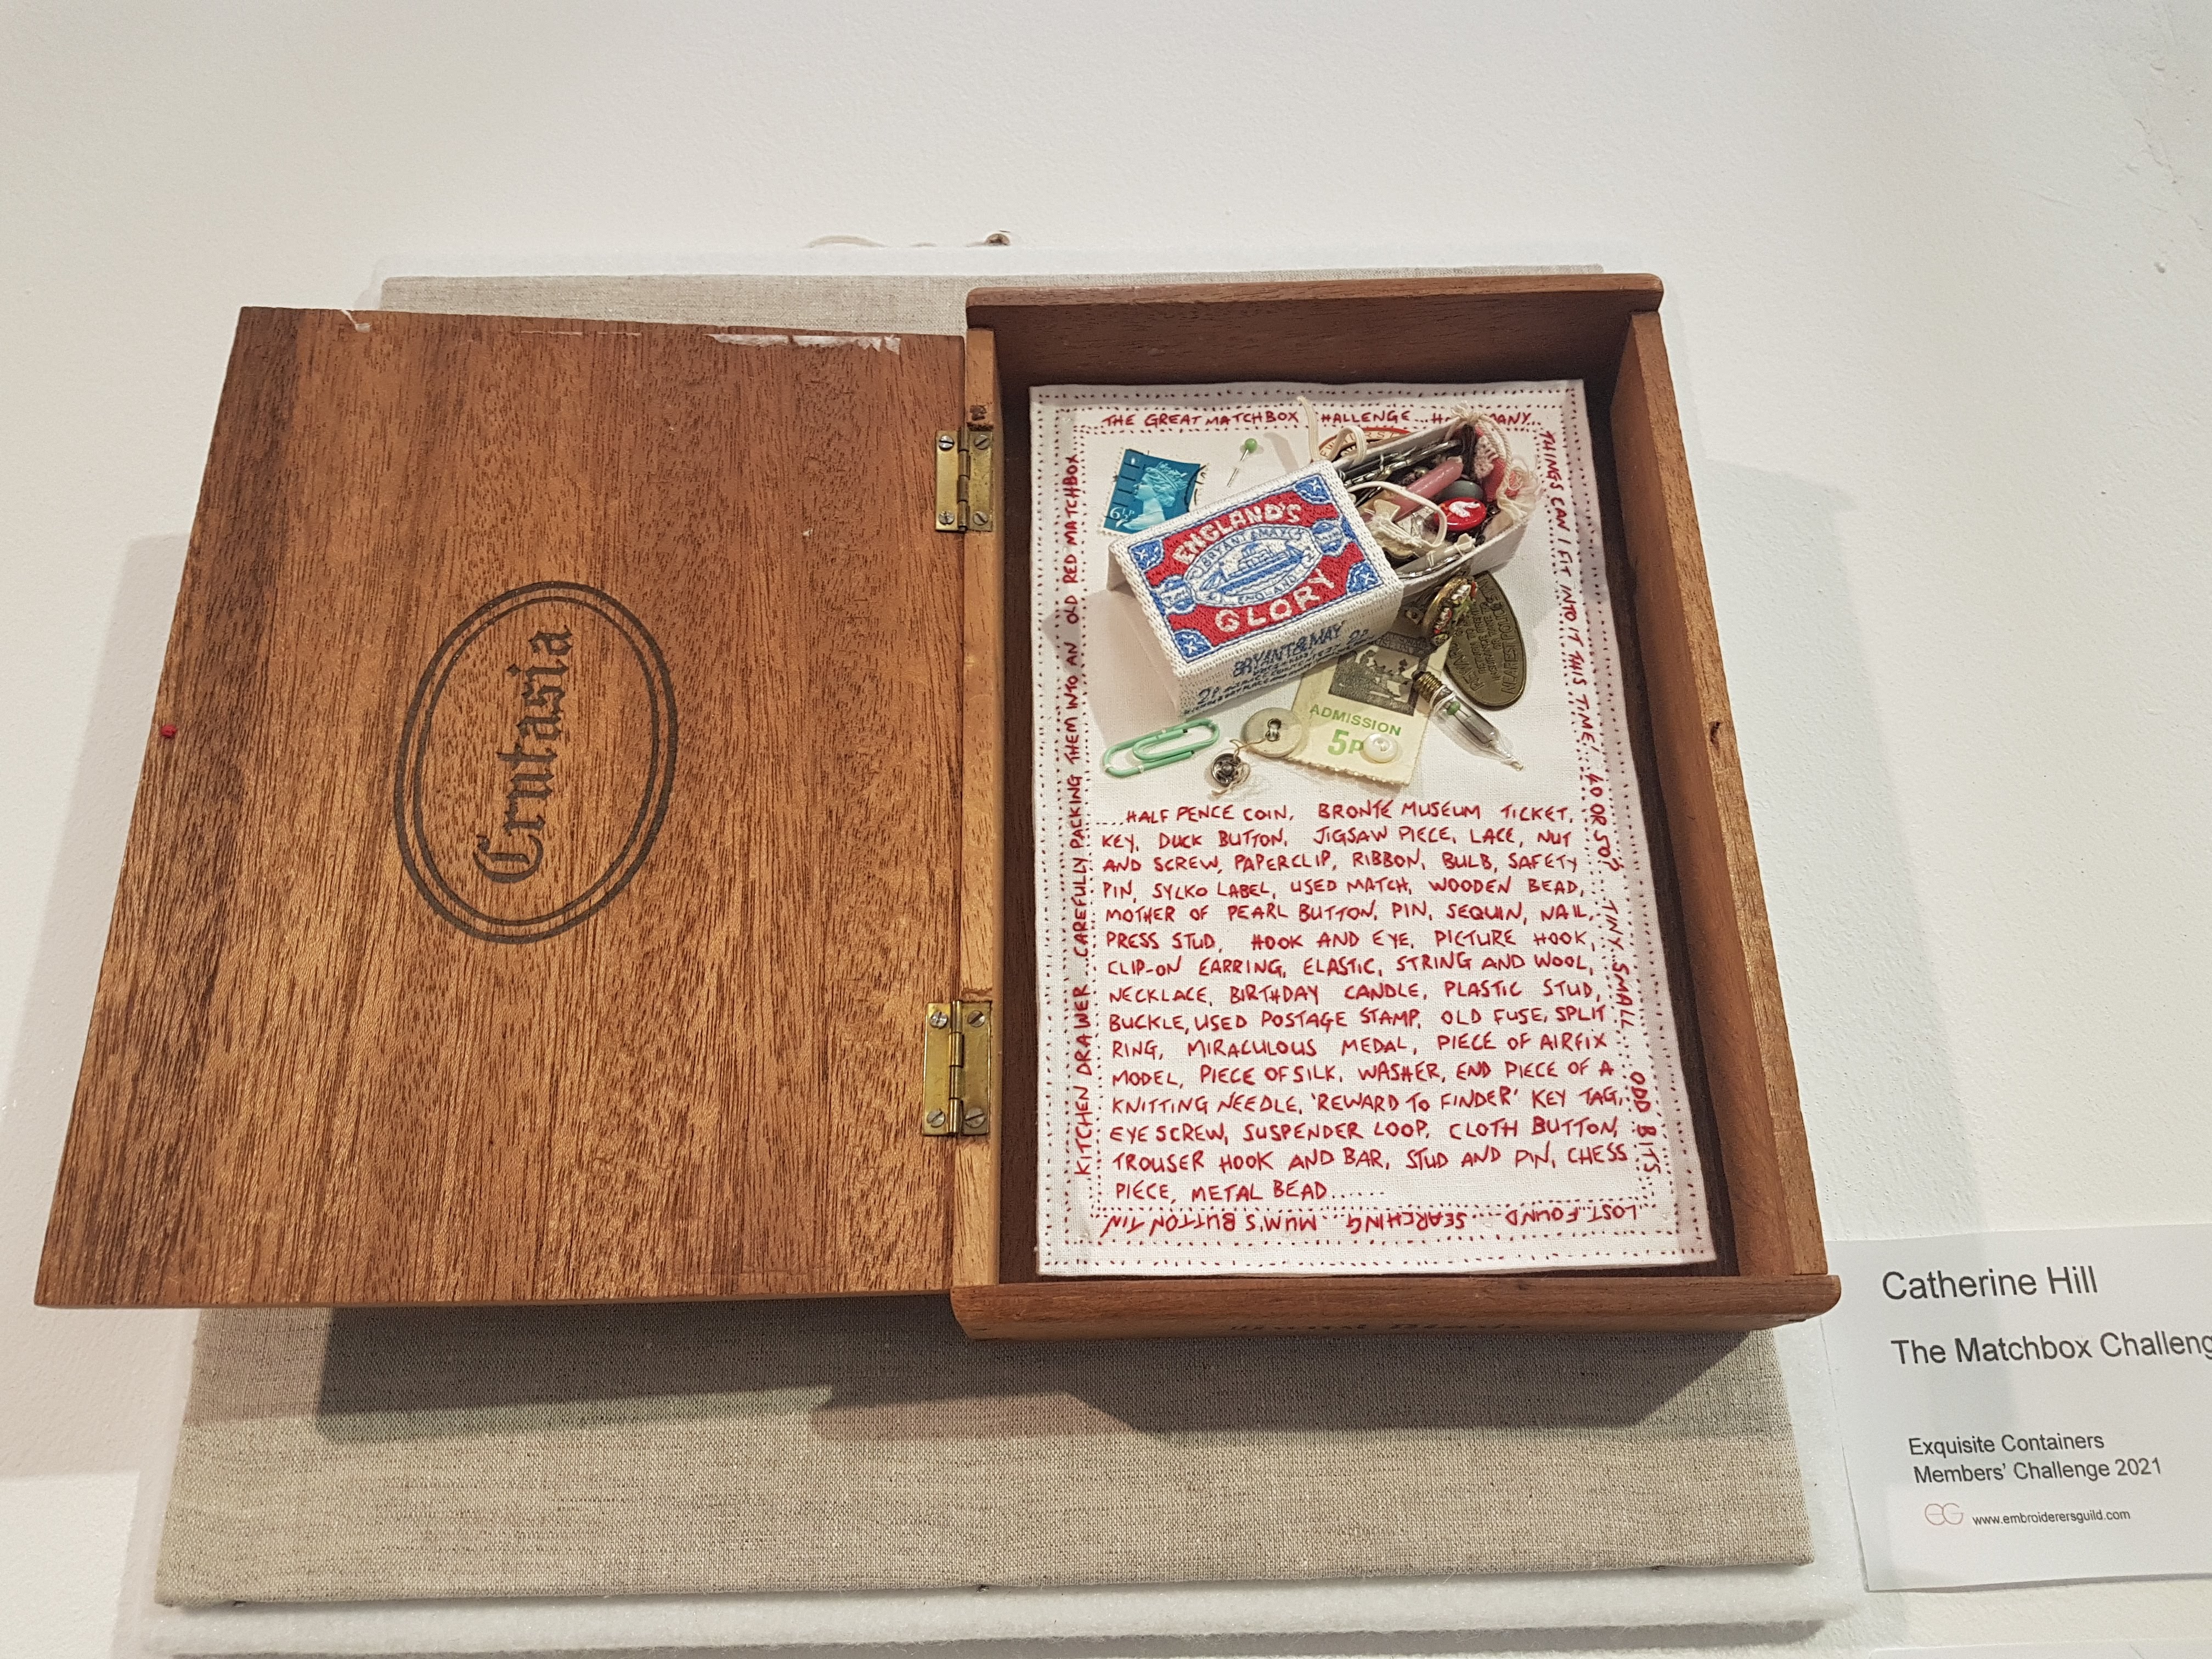 Crntasia
THE GREAT MATCHBOX HALLENGE...H MANY...
THINGS CAN I FIT INTO IT THIS TIME! 40 OR 50? TINY..SMALL..ODD BITS
LOST..FOUND...SEARCHING...MUM'S BUTTON TIN
KITCHEN DRAWER...CAREFULLY PACKING THEM INTO AN OLD RED MATCHBOX
6½P
ENGLAND'S
BRYANT & MAY
ENGLAND
GLORY
BRYANT & MAY
ADMISSION
5p
NEAREST POLICE
....HALF PENCE COIN, BRONTË MUSEUM TICKET,
KEY, DUCK BUTTON, JIGSAW PIECE, LACE, NUT
AND SCREW, PAPERCLIP, RIBBON, BULB, SAFETY
PIN, SYLKO LABEL, USED MATCH, WOODEN BEAD,
MOTHER OF PEARL BUTTON, PIN, SEQUIN, NAIL,
PRESS STUD, HOOK AND EYE, PICTURE HOOK,
CLIP-ON EARRING, ELASTIC, STRING AND WOOL,
NECKLACE, BIRTHDAY CANDLE, PLASTIC STUD,
BUCKLE, USED POSTAGE STAMP, OLD FUSE, SPLIT
RING, MIRACULOUS MEDAL, PIECE OF AIRFIX
MODEL, PIECE OF SILK, WASHER, END PIECE OF A
KNITTING NEEDLE, 'REWARD TO FINDER' KEY TAG,
EYE SCREW, SUSPENDER LOOP, CLOTH BUTTON,
TROUSER HOOK AND BAR, STUD AND PIN, CHESS
PIECE, METAL BEAD......
Catherine Hill
The Matchbox Challeng
Exquisite Containers
Members' Challenge 2021
EG www.embroiderersguild.com